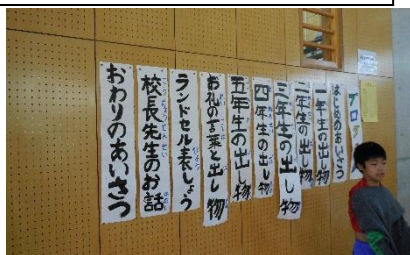 プログラ
はじめのあいさつ
一年生の出し物
二年生の出し物
三年生の出し物
四年生の出し物
五年生の出し物
お礼の言葉と出し物
ランドセル表しょう
校長先生のお話
おわりのあいさつ